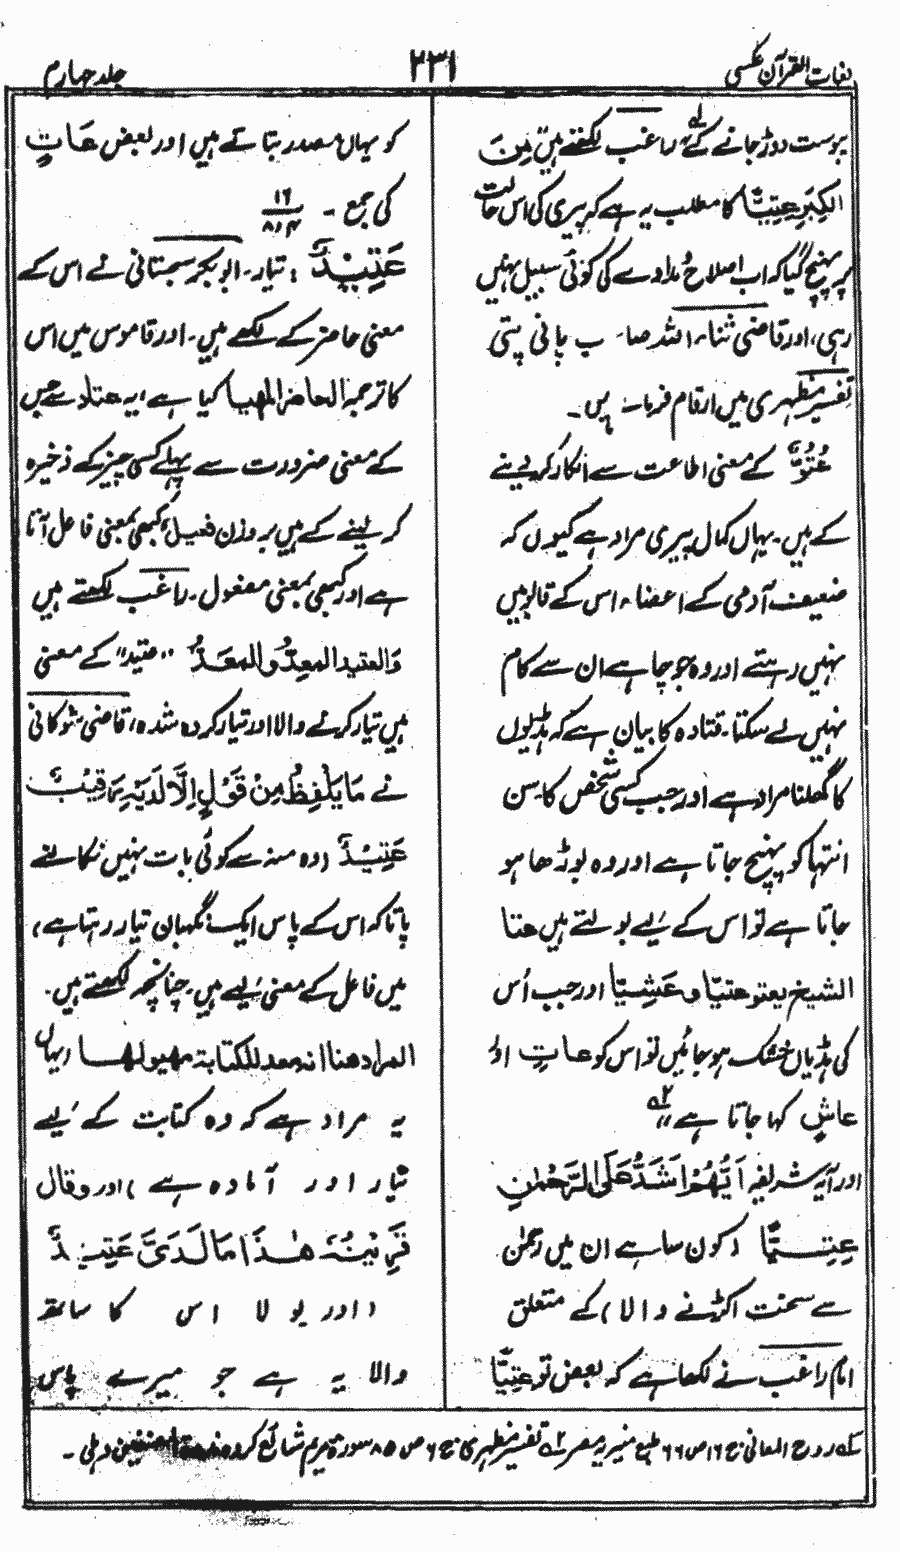 لغات القرآن عکسی
۲۳۱
جلد چہارم
پوست دوڑ جانے کے۱؎ راغب لکھتے ہیں مِنَ
الْکِبَرِ عِتِیًّا کا مطلب یہ ہے کہ پیری کی اس حالت
پر پہنچ گیا کہ اب اصلاح و مداوے کی کوئی سبیل نہیں
رہی، اور قاضی ثناء اللہ صاحب پانی پتی
تفسیر مظہری میں ارقام فرماتے ہیں۔
عُتُوٌّ کے معنی اطاعت سے انکار کر دینے
کے ہیں۔ یہاں کمال پیری مراد ہے کیوں کہ
ضعیف آدمی کے اعضاء اس کے قابو میں
نہیں رہتے اور وہ جو چاہے ان سے کام
نہیں لے سکتا۔ قتادہ کا بیان ہے کہ ہڈیوں
کا گھلنا مراد ہے اور جب کسی شخص کا سن
انتہا کو پہنچ جاتا ہے اور وہ بوڑھا ہو
جاتا ہے تو اس کے لیے بولتے ہیں عتا
الشیخ یعتو عتیًّا و عَشِیًّا اور جب اُس
کی ہڈیاں خشک ہو جائیں تو اس کو عاتٍ اور
عاسٍ کہا جاتا ہے"۲؎
اور آیہ شریفہ اَیُّهُمْ اَشَدُّ عَلَی الرَّحْمٰنِ
عِتِیًّا (کون سا ہے ان میں رحمٰن
سے سخت اکڑنے والا) کے متعلق
امام راغب نے لکھا ہے کہ بعض تو عِتِیًّا
کو یہاں مصدر بتاتے ہیں اور بعض عَاتٍ
کی جمع۔ ۱۶ / ۸،۴
عَتِیْدٌ: تیار۔ ابوبکر سجستانی نے اس کے
معنی حاضر کے لکھے ہیں۔ اور قاموس میں اس
کا ترجمہ الحاضر المھیا کیا ہے، یہ عتاد سے جس
کے معنی ضرورت سے پہلے کسی چیز کے ذخیرہ
کر لینے کے ہیں بروزن فعیل کبھی بمعنی فاعل آتا
ہے اور کبھی بمعنی مفعول۔ راغب لکھتے ہیں
والعتید المعِدُّ والمعَدُّ "عتید" کے معنی
ہیں تیار کرنے والا اور تیار کردہ شدہ، قاضی شوکانی
نے مَا یَلْفِظُ مِنْ قَوْلٍ اِلَّا لَدَیْهِ رَقِیْبٌ
عَتِیْدٌ (وہ منہ سے کوئی بات نہیں نکالنے
پاتا کہ اس کے پاس ایک نگہبان تیار رہتا ہے)
میں فاعل کے معنی لیے ہیں۔ چنانچہ لکھتے ہیں۔
المراد ھنا انہ معد للکتابة مھیو لھا (یہاں
یہ مراد ہے کہ وہ کتابت کے لیے
تیار اور آمادہ ہے) اور وقال
قَرِیْنُهٗ هٰذَا مَا لَدَیَّ عَتِیْدٌ
(اور بولا اس کا ساتھ
والا یہ ہے جو میرے پاس
۱؎ روح المعانی ج ۱۶ ص ۶۶ طبع منیریہ مصر ۲؎ تفسیر مظہری ج ۶ ص ۸۵ سورۃ مریم شائع کردہ ندوۃ المصنفین دہلی۔